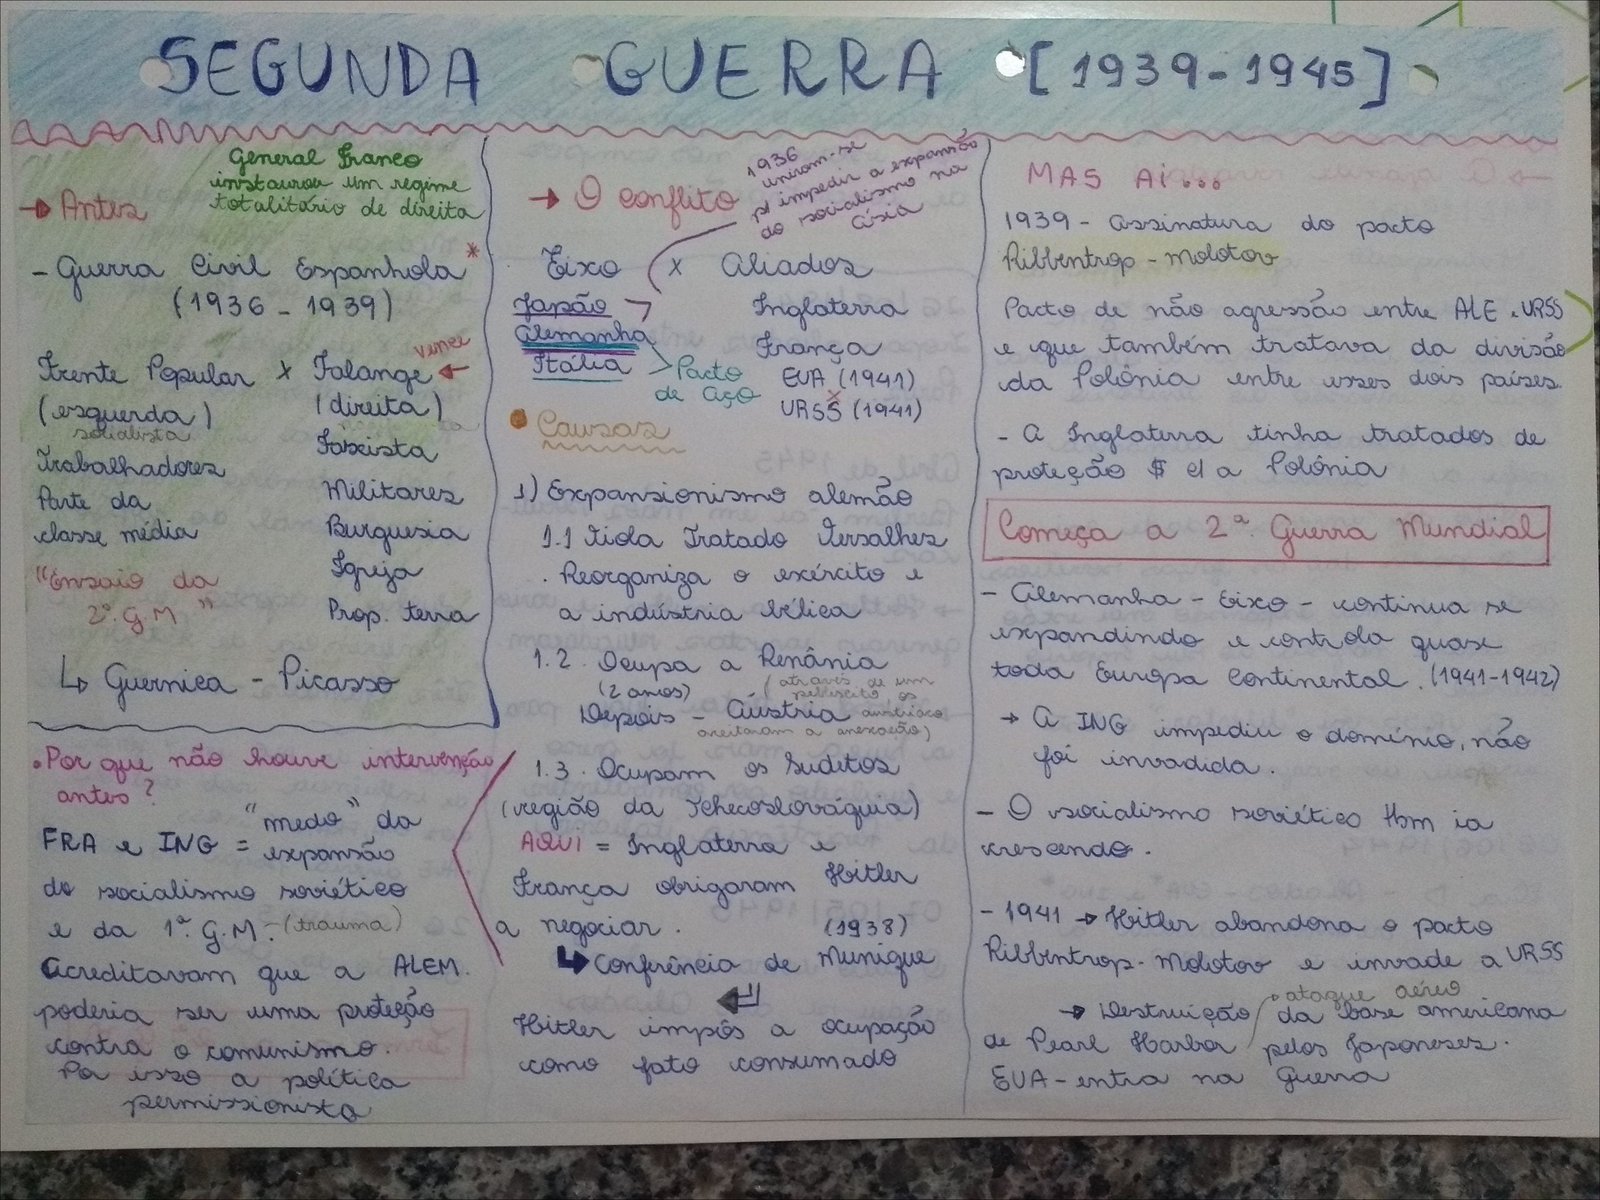 SEGUNDA GUERRA [1939-1945]
General Franco
instaurou um regime
totalitário de direita
→ Antes
- Guerra Civil Espanhola *
(1936 - 1939)
vence
Frente Popular x Falange ←
(esquerda) (direita)
socialista
Fascista
Trabalhadores
Militares
Parte da
classe média
Burguesia
Igreja
"Ensaio da
2ª. G.M"
Prop. terra
↳ Guernica - Picasso
. Por que não houve intervenção
antes?
FRA e ING = "medo" da
expansão
do socialismo soviético
e da 1ª. G.M. - (trauma)
Acreditavam que a ALEM.
poderia ser uma proteção
contra o comunismo.
Por isso a política
permissionista
→ O conflito
1936
uniram-se
p/ impedir a expansão
do socialismo na
Ásia
Eixo x Aliados
Japão
Alemanha
Itália
Pacto
de Aço
Inglaterra
França
EUA (1941)
x
URSS (1941)
Causas
1) Expansionismo alemão
1.1 Viola Tratado Versalhes
. Reorganiza o exército e
a indústria bélica
1.2. Ocupa a Renânia
(2 anos)
Depois - Áustria
(através de um
plebiscito os
austríacos
aceitaram a anexação)
1.3. Ocupam os Sudetos
(região da Tchecoslováquia)
AQUI = Inglaterra e
França obrigaram Hitler
a negociar. (1938)
↳ Conferência de Munique
Hitler impôs a ocupação
como fato consumado
MAS AÍ...
1939 - assinatura do pacto
Ribbentrop - Molotov
Pacto de não agressão entre ALE e URSS
e que também tratava da divisão
da Polônia entre esses dois países.
- A Inglaterra tinha tratados de
proteção $ c/ a Polônia
Começa a 2ª. Guerra Mundial
- Alemanha - Eixo - continua se
expandindo e controla quase
toda Europa Continental. (1941-1942)
→ A ING impediu o domínio, não
foi invadida.
- O socialismo soviético tbm ia
crescendo.
- 1941 → Hitler abandona o pacto
Ribbentrop-Molotov e invade a URSS
ataque aéreo
→ Destruição da base americana
de Pearl Harbor pelos Japoneses.
EUA - entra na Guerra